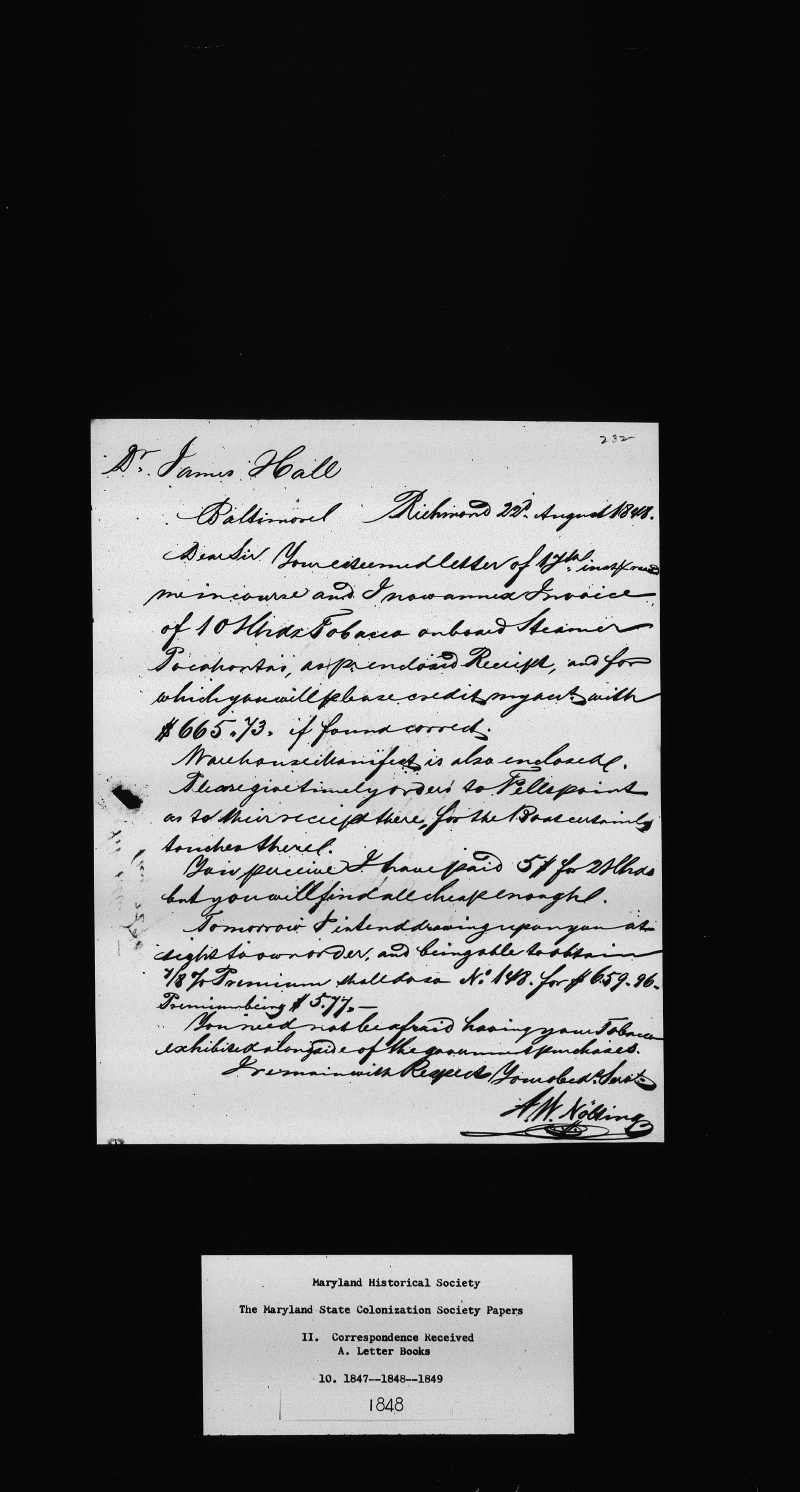 232
Dr. James Hall
Baltimore Richmond 22d. August 1848.
Dear Sir Your esteemed letter of 17th inst reached
me in course and I now annex Invoice
of 10 Hhds Tobacco on board Steamer
Pocahontas, as pr. enclosed Receipt, and for
which you will please credit my act. with
$665.73. if found correct.
Warehouse Manifest is also enclosed.
Please give timely orders to Fellspoint
as to their receipt there, for the Boat certainly
touches there.
You perceive I have paid 5¼ for 2 Hhds
but you will find all cheap enough.
Tomorrow I intend drawing upon you at
sight to own order, and being able to obtain
7/8 % Premium shall do so No. 148. for $659.96.
Premium being $5.77.—
You need not be afraid having your Tobacco
exhibited alongside of the government purchases.
I remain with Respect Your obedt. Servt.
A. W. Nölting
Maryland Historical Society
The Maryland State Colonization Society Papers
II. Correspondence Received
A. Letter Books
10. 1847--1848--1849
1848